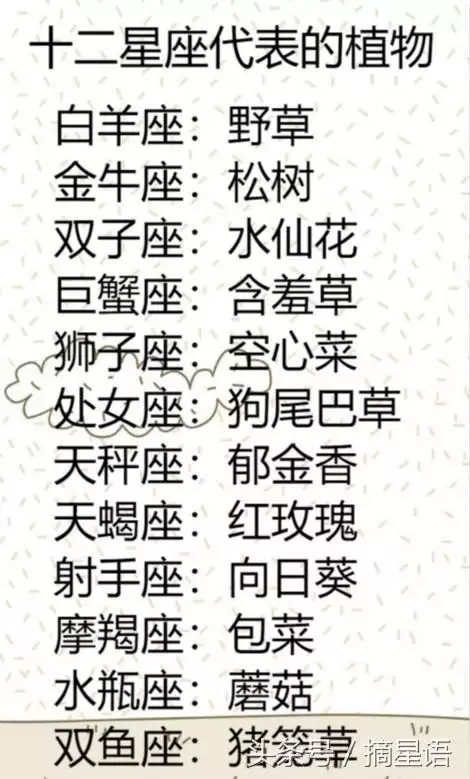 十二星座代表的植物
白羊座：野草
金牛座：松树
双子座：水仙花
巨蟹座：含羞草
狮子座：空心菜
处女座：狗尾巴草
天秤座：郁金香
天蝎座：红玫瑰
射手座：向日葵
摩羯座：包菜
水瓶座：蘑菇
双鱼座：猪笼草
头条号 / 摘星语